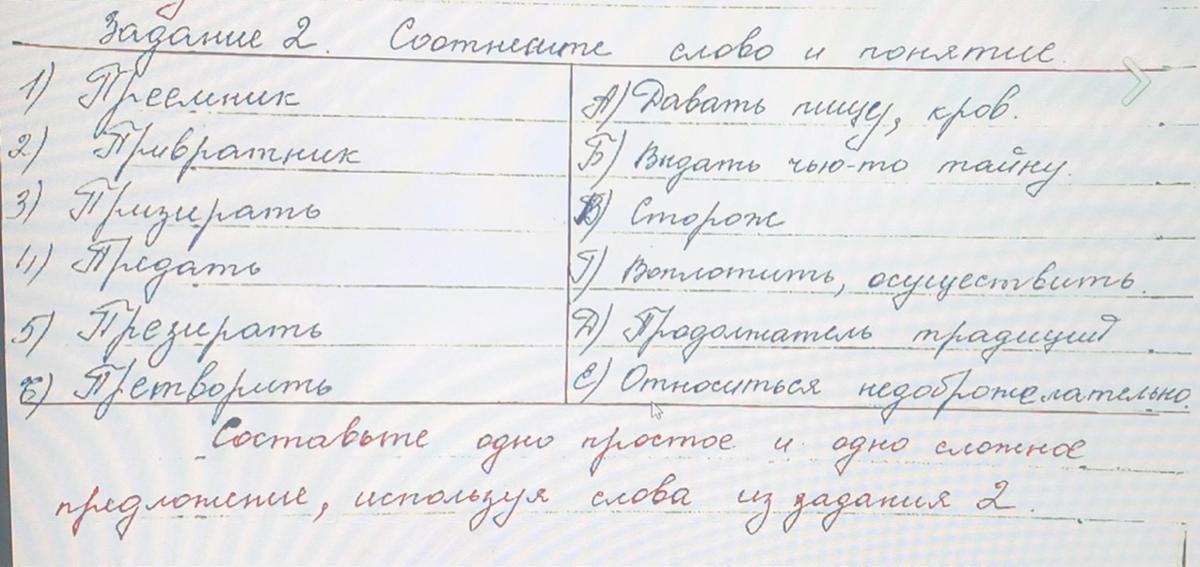 Задание 2. Соотнесите слово и понятие.
1) Преемник А) Давать пищу, кров.
2) Привратник Б) Выдать чью-то тайну.
3) Призирать В) Сторож
4) Предать Г) Воплотить, осуществить.
5) Презирать Д) Продолжатель традиций
6) Претворить Е) Относиться недоброжелательно.
Составьте одно простое и одно сложное
предложение, используя слова из задания 2.